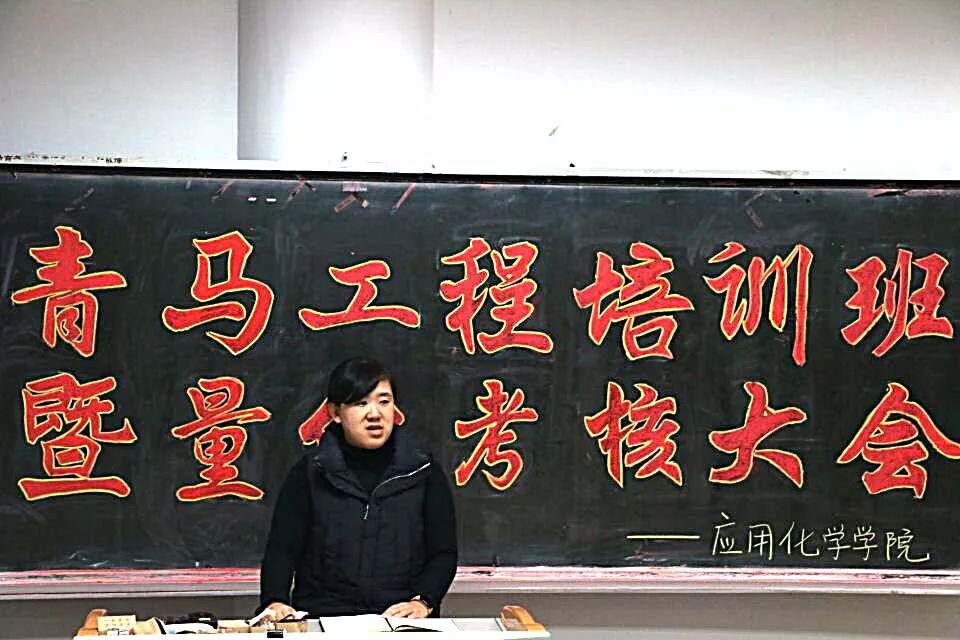 青马工程培训班
暨量化考核大会
——应用化学学院